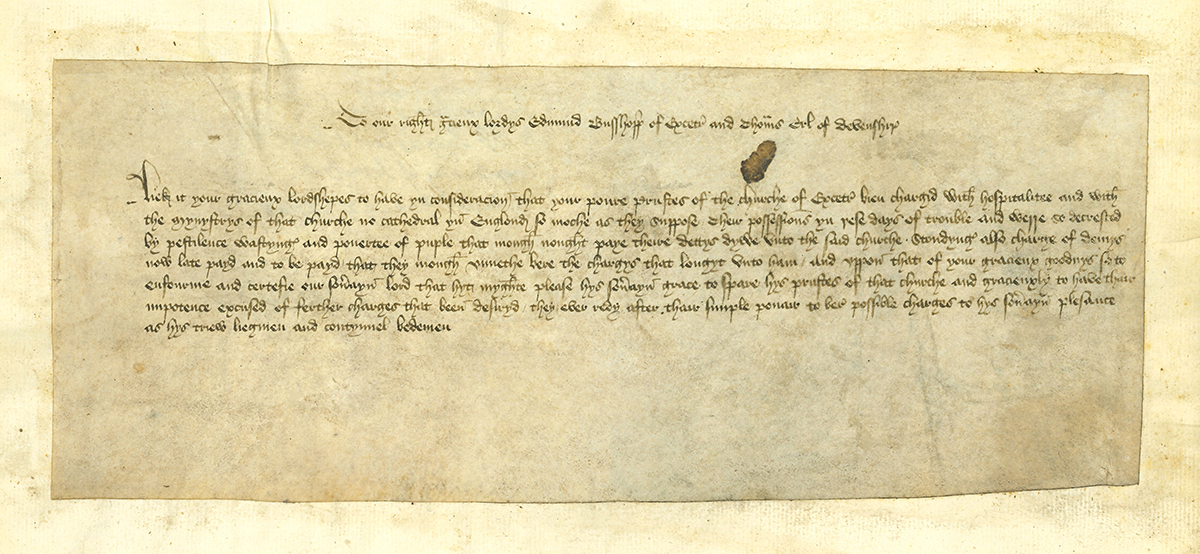 To our right gracieux lordys Edmund Bisshopp of Excetre and Thomas Erl of Devenshir
Liek it your gracieux lordshepes to have yn consideracion that your povre prustes of the churche of Excetre bien chargid with hospitalitee and with
the mynystrys of that churche no cathedral yn Englond so moche as they suppose their possessions yn yese days of trouble and werre so decresed
by pestilence wastyng and povertee of puple that mough nought paye theire dettys dywe unto the said churche . Stondyng also charge of demys
now late payd and to be payd that they mough unnethe bere the chargys that longyt unto ham / and uppon that of your gracieux goodnys so to
enfourme and certefie our soverayn lord that hyt myghte please hys soverayn grace to spare hys prustes of that churche and graciexly to have thair
impotence excused of ferther charges that been desiryd they ever redy after thair simple povair to ber possible charges to hys soverayn plesance
as hys triew liegmen and contynnel bedemen